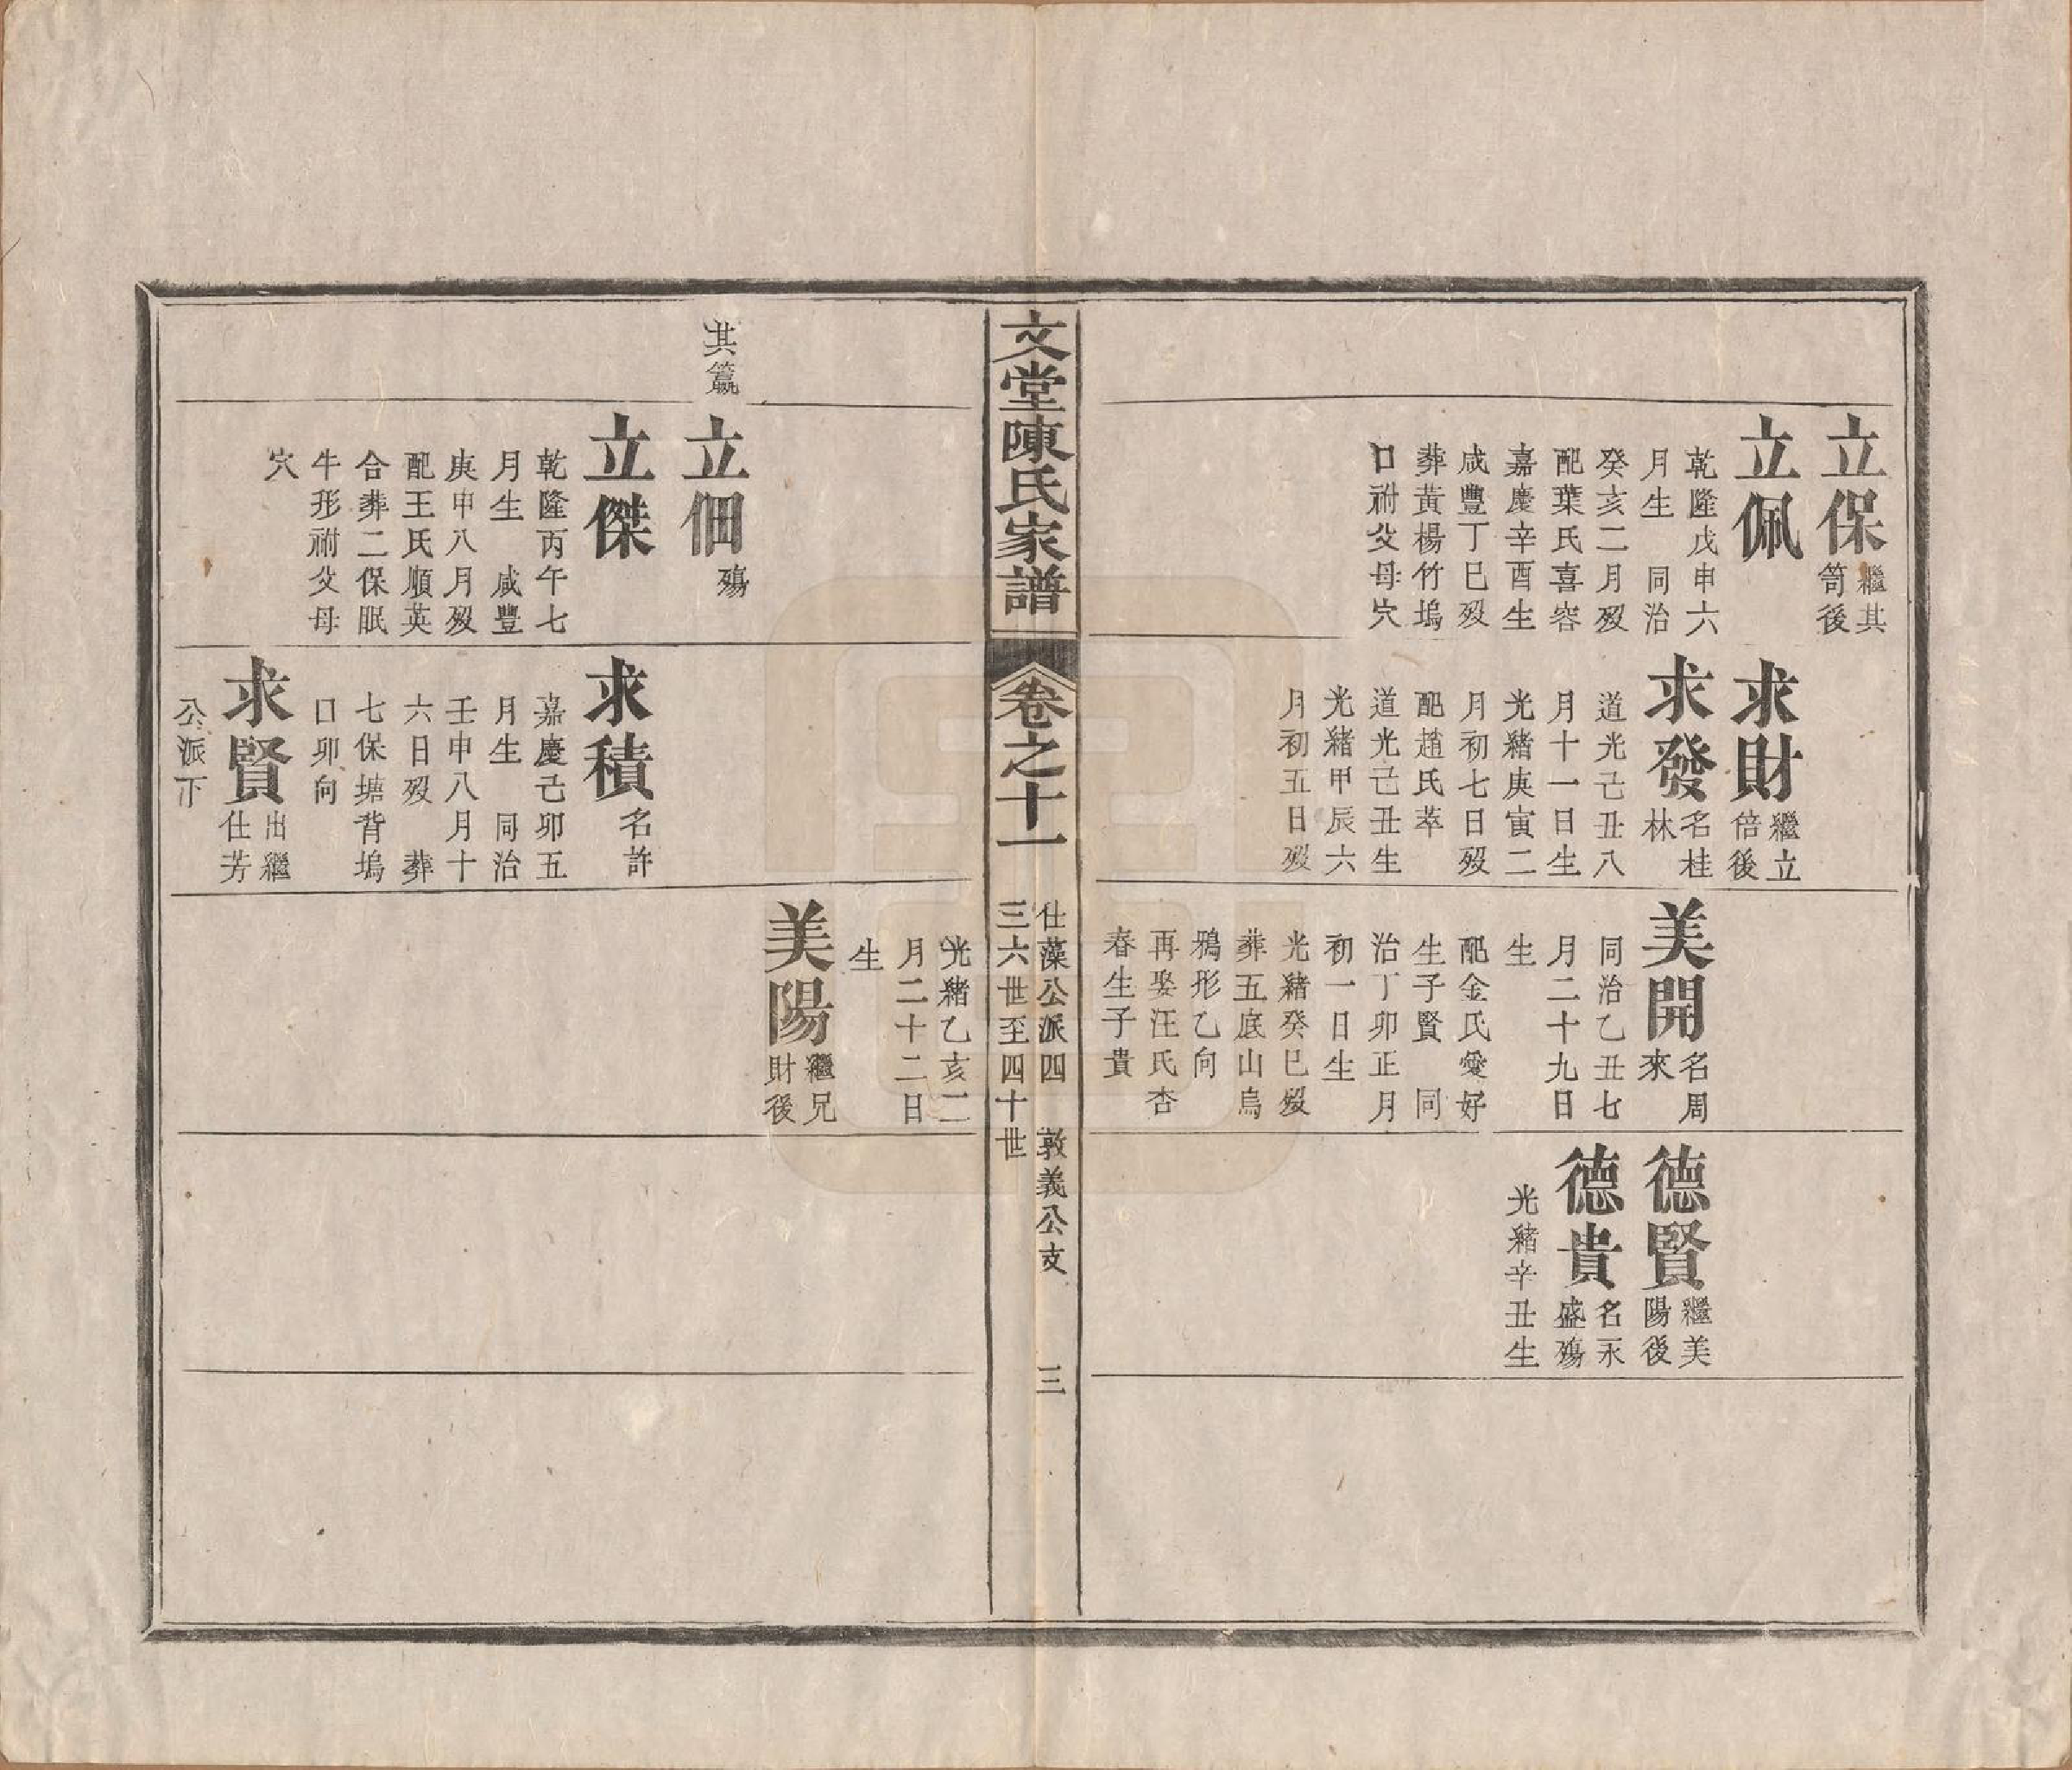 立保
繼其
笥後
立佩
乾隆戊申六
月生　同治
癸亥二月歿
配葉氏喜容
嘉慶辛酉生
咸豐丁巳歿
葬黃楊竹塢
口祔父母穴
求財
繼立
倍後
求發
名桂
林
道光己丑八
月十一日生
光緒庚寅二
月初七日歿
配趙氏萃
道光己丑生
光緒甲辰六
月初五日歿
美開
名周
來
同治乙丑七
月二十九日
生
配金氏愛好
生子賢　同
治丁卯正月
初一日生
光緒癸巳歿
葬五底山烏
鴉形乙向
再娶汪氏杏
春生子貴
德賢
繼美
陽後
德貴
名永
盛殤
光緒辛丑生
文堂陳氏家譜
卷之十一
仕藻公派四　敦義公支
三六世至四十世
三
其籯
立佃
殤
立傑
乾隆丙午七
月生　咸豐
庚申八月歿
配王氏順英
合葬二保眠
牛形祔父母
穴
求積
名許
嘉慶己卯五
月生　同治
壬申八月十
六日歿　葬
七保塘背塢
口卯向
求賢
出繼
仕芳
公派下
光緒乙亥二
月二十二日
生
美陽
繼兄
財後